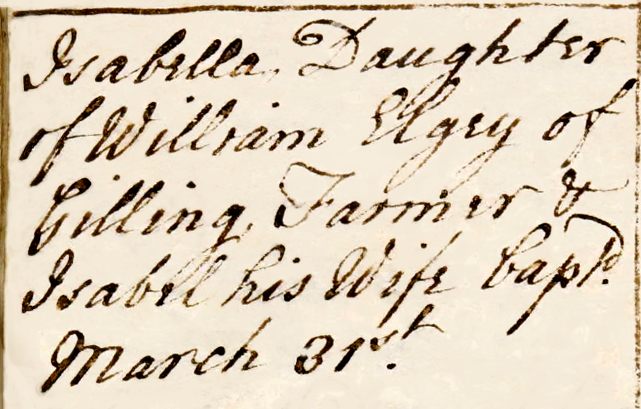 Isabella, Daughter
of William Elgey of
Gilling, Farmer &
Isabel his Wife bapt.d
March 31st.